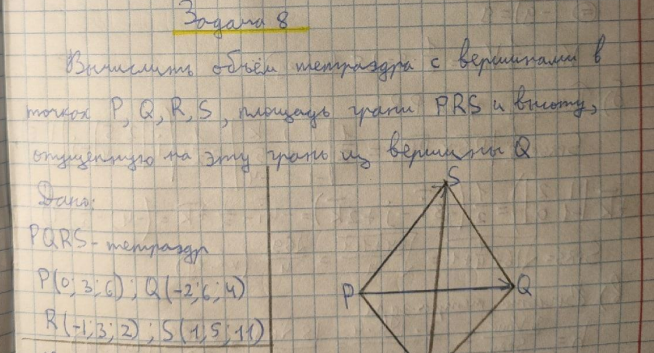 Задача 8
Вычислить объём тетраэдра с вершинами в
точках P, Q, R, S, площадь грани PRS и высоту,
опущенную на эту грань из вершины Q
Дано:
PQRS - тетраэдр
P(0; 3; 6); Q(-2; 6; 4)
R(-1; 3; 2); S(1; 5; 11)
S
P
Q